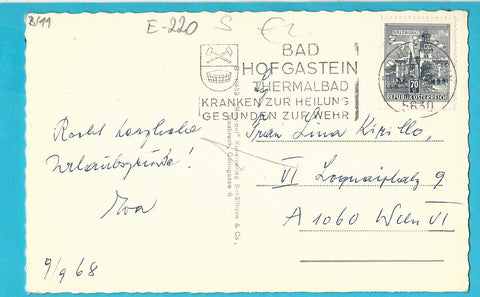 8/11
E-220
S
€2
BAD
HOFGASTEIN
THERMALBAD
KRANKEN ZUR HEILUNG
GESUNDEN ZUR WEHR
SALZBURG
70
REPUBLIK ÖSTERREICH
5630
Recht herzliche
Urlaubsgrüße!
Eva
9/9 68
Frau Lina Kirillo,
VI Loquaiplatz 9
A 1060 Wien VI